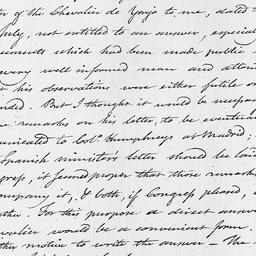 er of the Chevalier de Yrujo to me, dated
July, not entitled to an answer, especial
cuments which had been made public
every well informed man and atten
his observations were either futile or
nded. But I thought it would be necessa
remarks on his letter, to be eventual
municated to Colo. Humphreys at Madrid;
Spanish minister's letter should be laid
gress, it seemed proper that those remarks
ompany it, & both, if Congress pleased,
ther. For this purpose a direct answer
valier would be a convenient form.
ther motive to write the answer — The